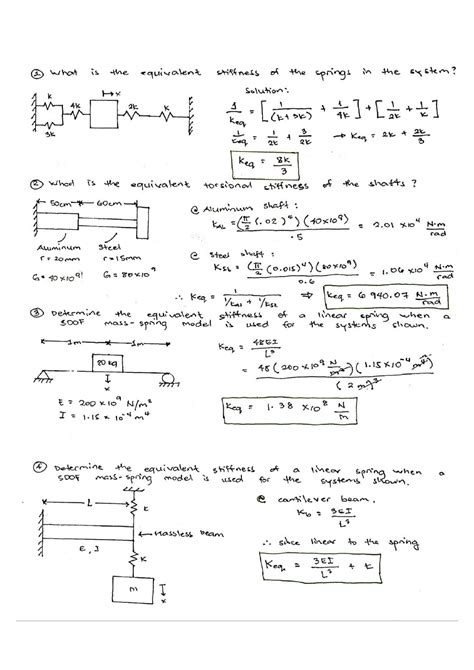 ① What is the equivalent stiffness of the springs in the system?
Solution:
k 4k x 2k k
3k
1/Keq = [1/(k+3k) + 1/4k] + [1/2k + 1/k]
1/Keq = 1/2k + 3/2k ⇒ Keq = 2k + 2k/3
Keq = 8k/3
② What is the equivalent torsional stiffness of the shafts?
50cm 60cm
@ Aluminum shaft:
KAL = (π/2 (.02)⁴)(40x10⁹) / .5 = 2.01 x10⁴ N·m/rad
Aluminum Steel
r = 20mm r = 15mm
G = 40x10⁹ G = 80x10⁹
@ Steel shaft:
Kst = (π/2 (0.015)⁴)(80x10⁹) / 0.6 = 1.06 x10⁴ N·m/rad
∴ Keq = 1 / (1/KAL + 1/Kst) ⇒ Keq = 6 940.07 N·m/rad
③ Determine the equivalent stiffness of a linear spring when a
SDOF mass-spring model is used for the systems shown.
1m 1m
80kg
E = 200 x10⁹ N/m²
I = 1.15 x 10⁻⁴ m⁴
Keq = 48EI/L³
= 48(200 x10⁹ N/m²)(1.15x10⁻⁴ m⁴) / (2m)³
Keq = 1.38 x10⁸ N/m
④ Determine the equivalent stiffness of a linear spring when a
SDOF mass-spring model is used for the systems shown.
L
k
Massless beam
E, I
k
m
x
@ cantilever beam.
Kb = 3EI/L³
∴ since linear to the spring
Keq = 3EI/L³ + k